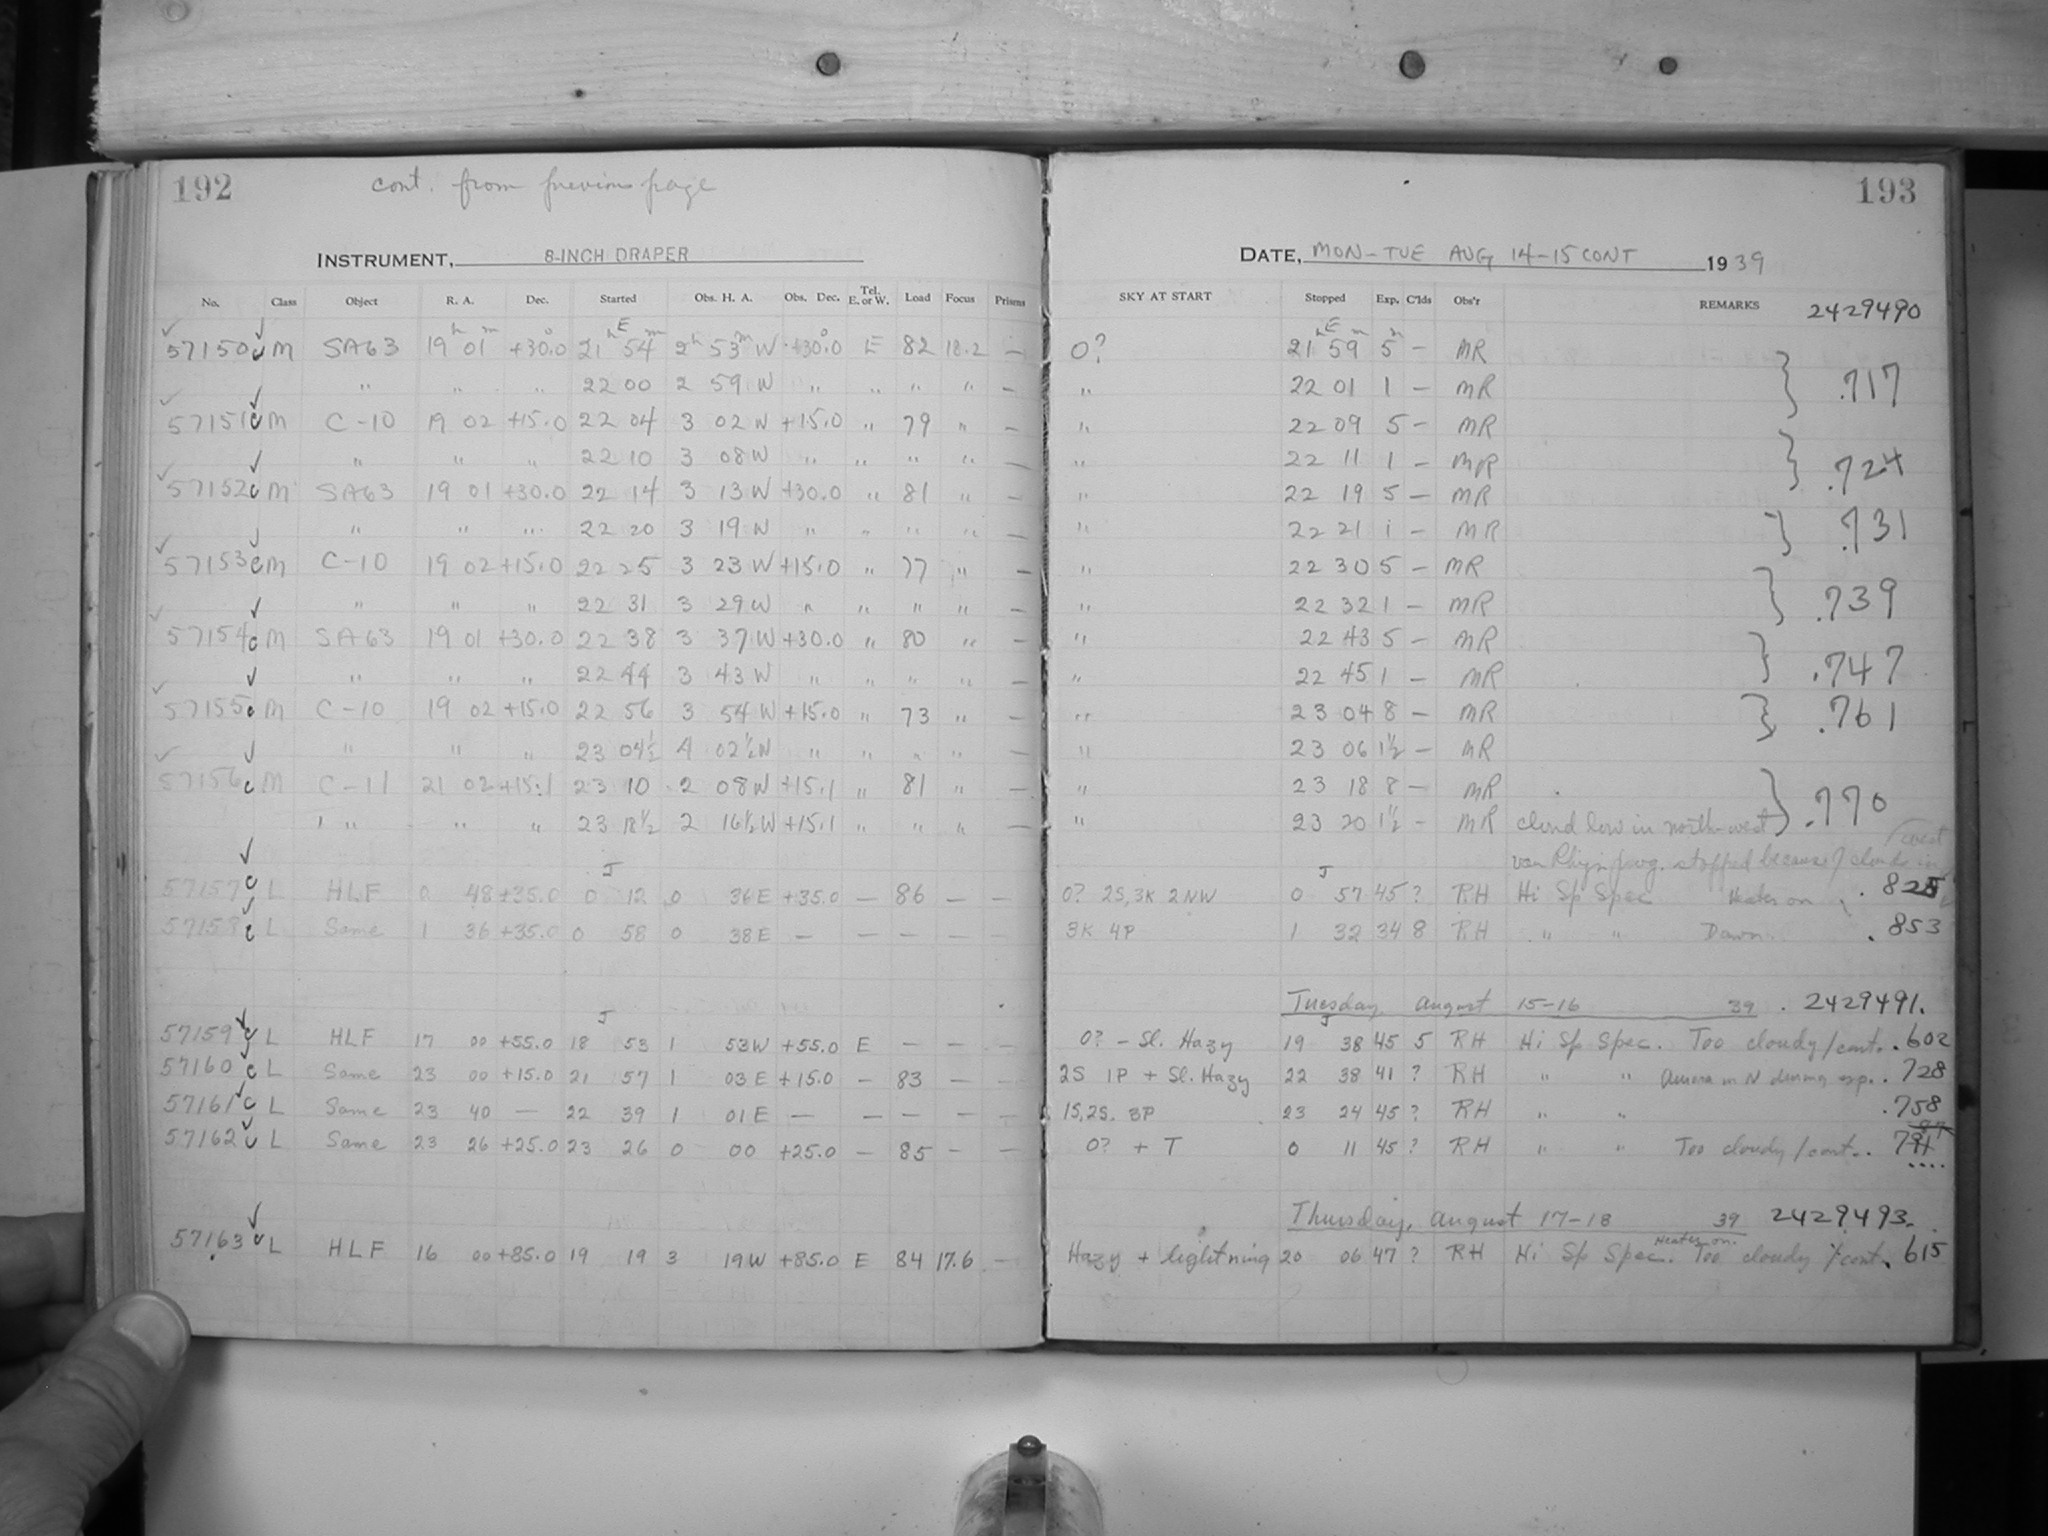 192 cont. from previous page
INSTRUMENT, 8-INCH DRAPER
No. Class Object R. A. Dec. Started Obs. H. A. Obs. Dec. Tel. E. or W. Load Focus Prisms
57150 c M SA63 19h 01m +30.0° 21h E 54m 2h 53m W +30.0° E 82 18.2 —
" " " 22 00 2 59 W " " " " —
57151 c M C-10 19 02 +15.0 22 04 3 02 W +15.0 " 79 " —
" " " 22 10 3 08 W " " " " —
57152 c M SA63 19 01 +30.0 22 14 3 13 W +30.0 " 81 " —
" " " 22 20 3 19 W " " " " —
57153 c M C-10 19 02 +15.0 22 25 3 23 W +15.0 " 77 " —
" " " 22 31 3 29 W " " " " —
57154 c M SA63 19 01 +30.0 22 38 3 37 W +30.0 " 80 " —
" " " 22 44 3 43 W " " " " —
57155 c M C-10 19 02 +15.0 22 56 3 54 W +15.0 " 73 " —
" " " 23 04½ 4 02½ W " " " " —
57156 c M C-11 21 02 +15.1 23 10 2 08 W +15.1 " 81 " —
" " " 23 18½ 2 16½ W +15.1 " " " —
57157 c L HLF 0 48 +35.0 0 J 12 0 36 E +35.0 — 86 — —
57158 c L Same 1 36 +35.0 0 58 0 38 E — — — — —
57159 c L HLF 17 00 +55.0 18 J 53 1 53 W +55.0 E — — —
57160 c L Same 23 00 +15.0 21 57 1 03 E +15.0 — 83 — —
57161 c L Same 23 40 — 22 39 1 01 E — — — — —
57162 c L Same 23 26 +25.0 23 26 0 00 +25.0 — 85 — —
57163 c L HLF 16 00 +85.0 19 19 3 19 W +85.0 E 84 17.6 —
193
DATE, MON-TUE AUG 14-15 CONT 1939
SKY AT START Stopped Exp. C'lds Obs'r REMARKS 2429490
0? 21h E 59m 5m — MR
" 22 01 1 — MR } .717
" 22 09 5 — MR
" 22 11 1 — MR } .724
" 22 19 5 — MR
" 22 21 1 — MR } .731
" 22 30 5 — MR
" 22 32 1 — MR } .739
" 22 43 5 — MR
" 22 45 1 — MR } .747
" 23 04 8 — MR } .761
" 23 06 1½ — MR
" 23 18 8 — MR
" 23 20 1½ — MR cloud low in north-west } .770
van Rhijn prog. stopped because of clouds in west
0? 2S, 3K 2NW 0 J 57 45 ? RH Hi Sp Spec Heater on
3K 4P 1 32 34 8 RH " " Dawn. .853
Tuesday August 15-16 39. 2429491.
0? - Sl. Hazy 19 J 38 45 5 RH Hi Sp Spec. Too cloudy / cont. .602
2S 1P + Sl. Hazy 22 38 41 ? RH " " Aurora in N during exp. .728
1S, 2S. 3P 23 24 45 ? RH " " .758
0? + T 0 11 45 ? RH " " Too cloudy / cont.
Thursday, August 17-18 39 2429493.
Hazy + lightning 20 06 47 ? RH Hi Sp Spec. Heater on. Too cloudy / cont. .615